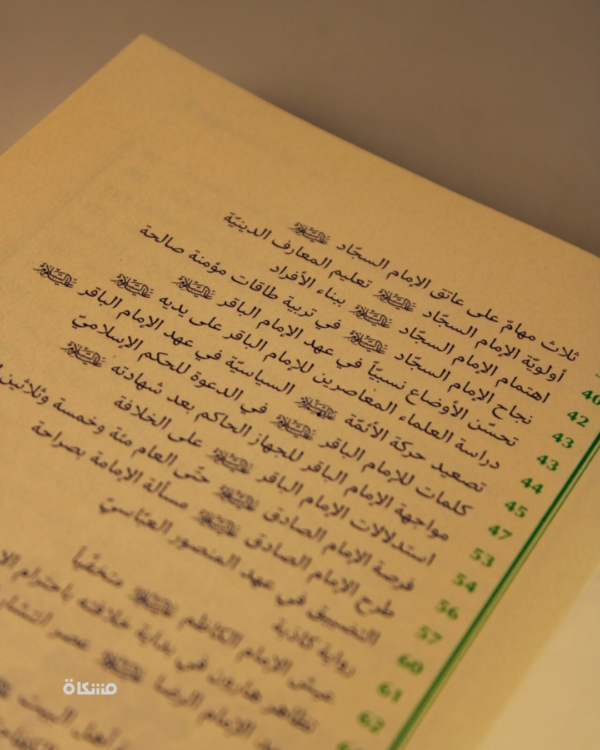 ثلاث مهامّ على عاتق الإمام السجّاد عليه السلام
أولويّة الإمام السجّاد عليه السلام تعليم المعارف الدينيّة 40
اهتمام الإمام السجّاد عليه السلام ببناء الأفراد 42
نجاح الإمام السجّاد عليه السلام في تربية طاقات مؤمنة صالحة 43
تحسّن الأوضاع نسبيّاً في عهد الإمام الباقر عليه السلام 43
دراسة العلماء المعاصرين للإمام الباقر على يديه عليه السلام 44
تصعيد حركة الأئمّة عليهم السلام السياسيّة في عهد الإمام الباقر عليه السلام 45
كلمات للإمام الباقر عليه السلام في الدعوة للحكم الإسلاميّ 47
مواجهة الإمام الباقر للجهاز الحاكم بعد شهادته عليه السلام 53
استدلالات الإمام الباقر عليه السلام على الخلافة 54
فرصة الإمام الصادق عليه السلام حتّى العام مئة وخمسة وثلاثين 56
طرح الإمام الصادق عليه السلام مسألة الإمامة بصراحة 57
التضييق في عهد المنصور العبّاسيّ 60
رواية كاذبة 61
عيش الإمام الكاظم عليه السلام متخفّياً 62
تظاهر هارون في بداية خلافته باحترام
الإمام الرضا عليه السلام عصر
أهل البيت
مشكاة